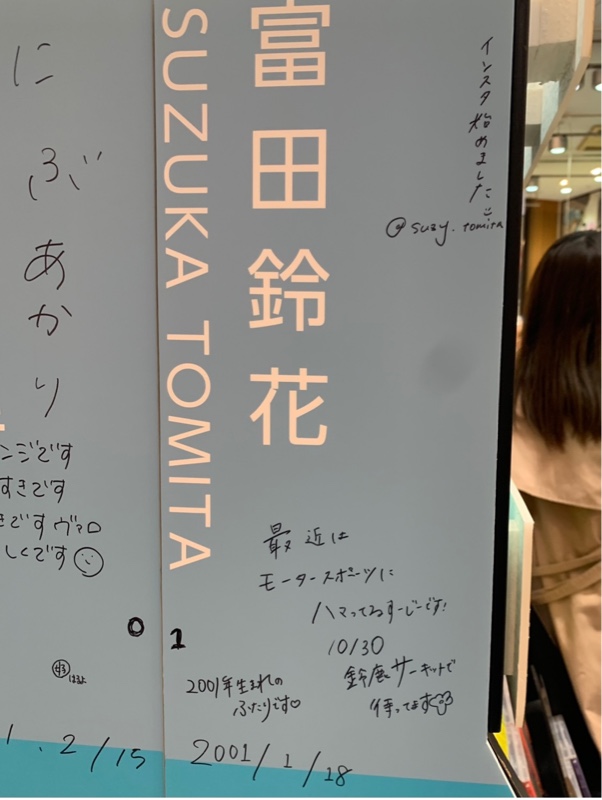 にぶあかり
ンジです
すきです
きです ヴァロ
しくです☺
0
.2/15
富田鈴花
SUZUKA TOMITA
インスタ始めました
@suzy.tomita
最近は
モータースポーツに
ハマってるすーじーです!
10/30
鈴鹿サーキットで
待ってます
1
2001年生まれの
ふたりです♡
2001/1/18